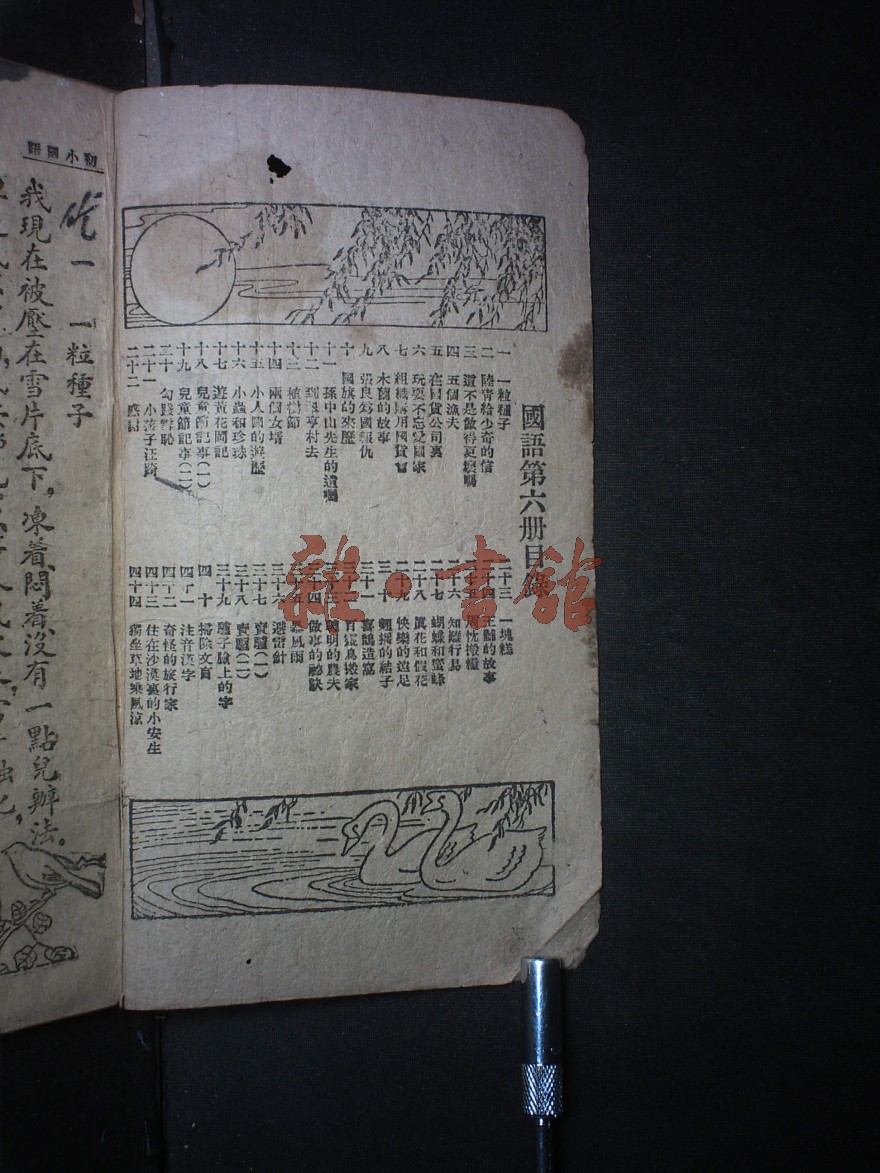 國語第六册目錄
一 一粒種子
二 陸青給少奇的信
三 這不是做得更壞嗎
四 五個漁夫
五 在國貨公司裏
六 玩耍不忘愛國家
七 組織購用國貨會
八 木蘭的故事
九 張良為國報仇
十 國旗的來歷
十一 孫中山先生的遺囑
十二 到翠亨村去
十三 植樹節
十四 兩個女壻
十五 小人國的遊歷
十六 小蟲和珍珠
十七 遊黃花岡記
十八 兒童節記事(一)
十九 兒童節記事(二)
二十 勾踐雪恥
二十一 小孩子汪踦
二十二 應對
二十三 一塊糕
二十四 王勔的故事
二十五 扇枕搬糧
二十六 知難行易
二十七 蝴蝶和蜜蜂
二十八 真花和假花
二十九 快樂的遠足
三十 翹翹的結子
三十一 喜鵲造窩
三十二 百靈鳥搬家
三十三 聰明的農夫
三十四 做事的祕訣
三十五 暴風雨
三十六 避雷針
三十七 賣驢(一)
三十八 賣驢(二)
三十九 驢子臉上的字
四十 掃除文盲
四十一 注音漢字
四十二 奇怪的旅行家
四十三 住在沙漠裏的小安生
四十四 獨坐草地乘風涼
初小國語
一 一粒種子
我現在被壓在雪片底下,凍着,悶着,沒有一點兒辦法。
雜·書館